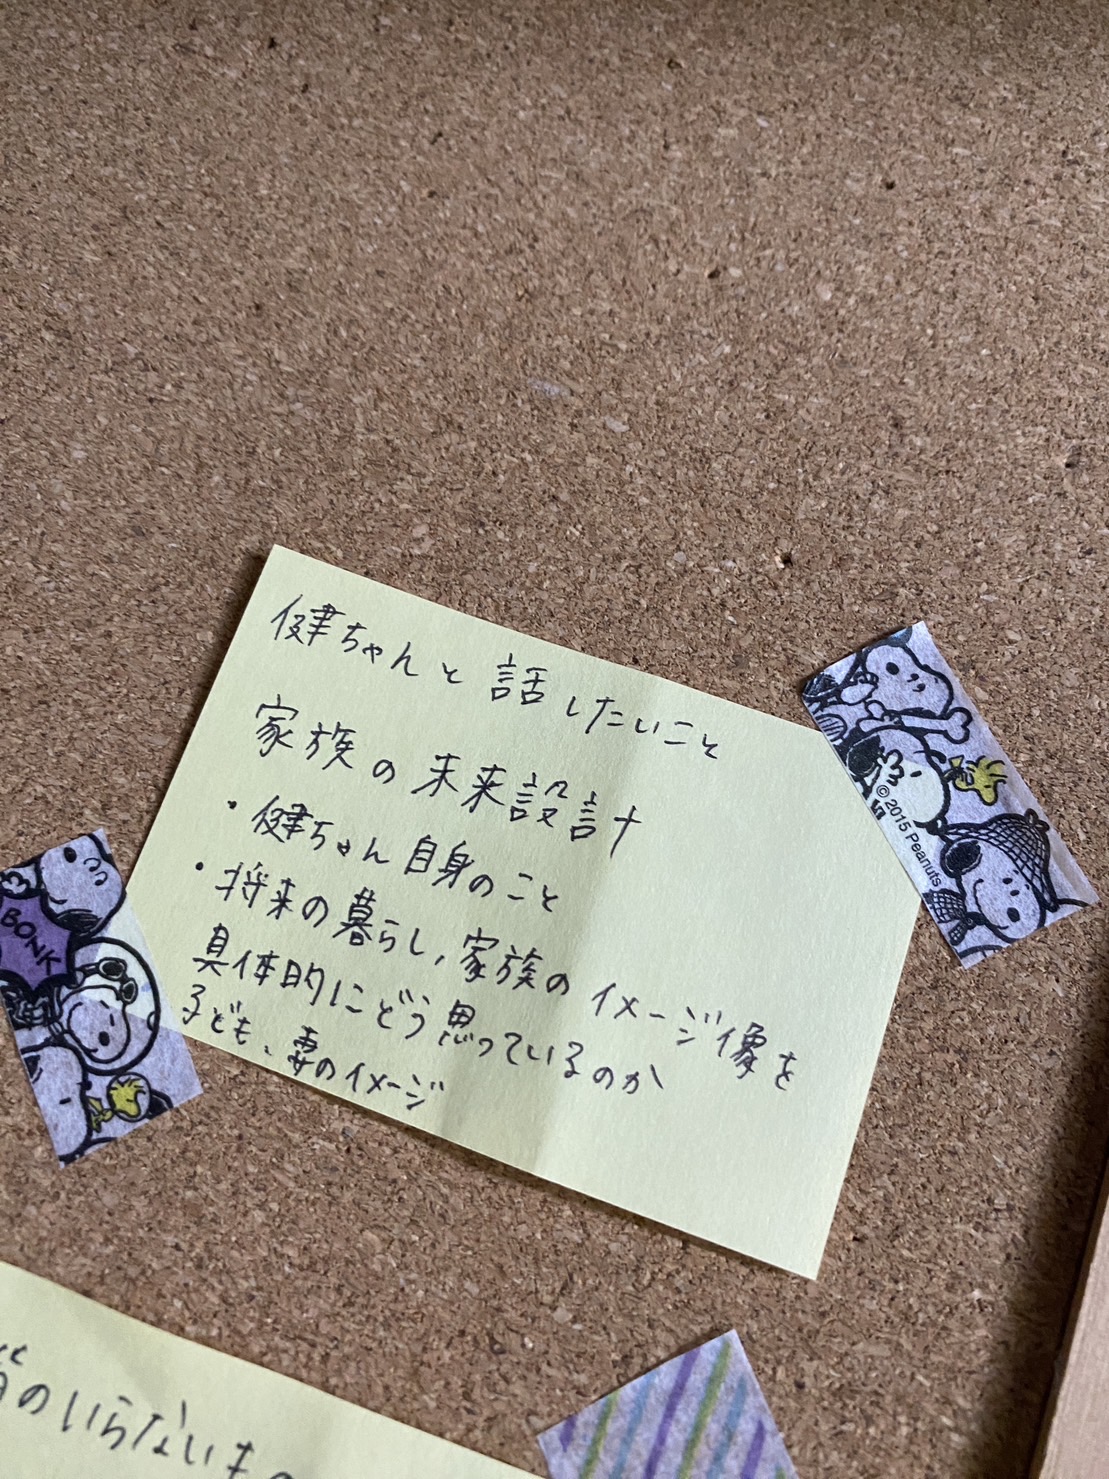 健ちゃんと話したいこと
家族の未来設計
・健ちゃん自身のこと
・将来の暮らし、家族のイメージ像を
具体的にどう思っているのか
子ども、妻のイメージ
© 2015 Peanuts
BONK
のいらないもの